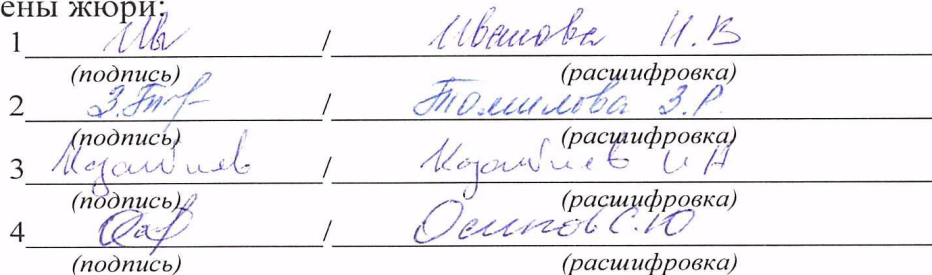 ены жюри:
1 / Иванова И. В
(подпись) (расшифровка)
2 / Томилова З. Р.
(подпись) (расшифровка)
3 / И А
(подпись) (расшифровка)
4 / Осипов С. Ю
(подпись) (расшифровка)